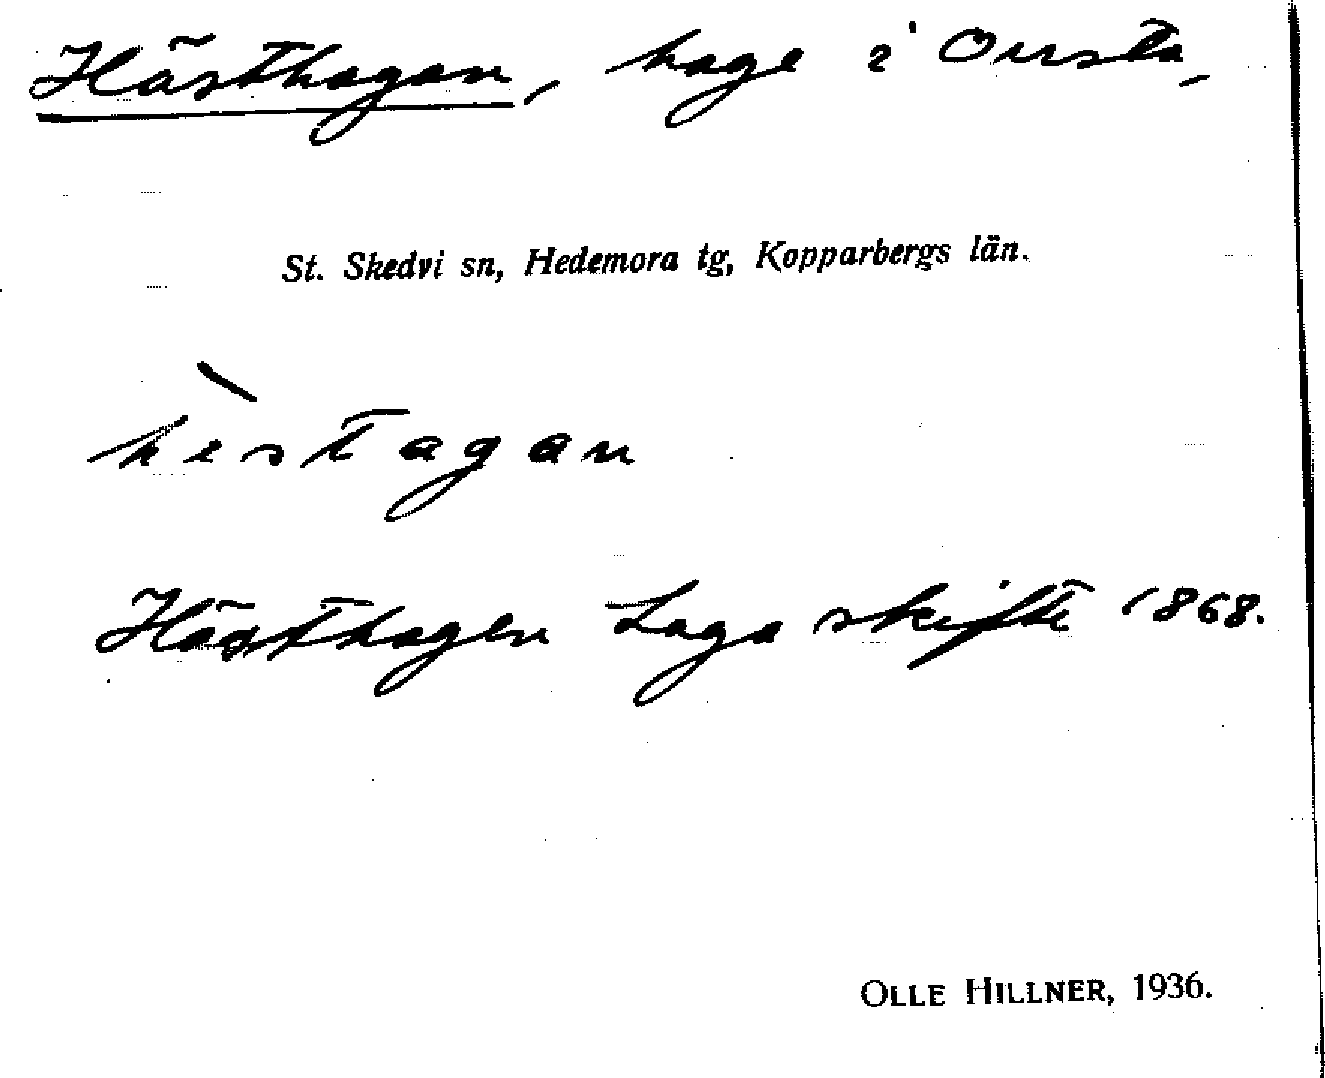 Hästhagen, hage i Onsta,
St. Skedvi sn, Hedemora tg, Kopparbergs län.
hèstagan
Hästhagen Laga skifte 1868.
OLLE HILLNER, 1936.